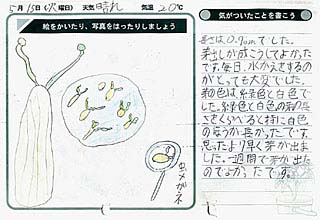 5月15日(火曜日) 天気 晴れ 気温 20℃
絵をかいたり、写真をはったりしましょう
虫メガネ
気がついたことを書こう
長さは0.9cmでした。
芽出しが成こうしてよかった
です。毎日、水かえをするの
がとっても大変でした。
の色は緑色と白色で
した。緑色と白色の
さをくらべると特に白色
のほうが長かったです。
思ったより早く芽が出ま
した。一週間で芽が出た
のでよかったです。